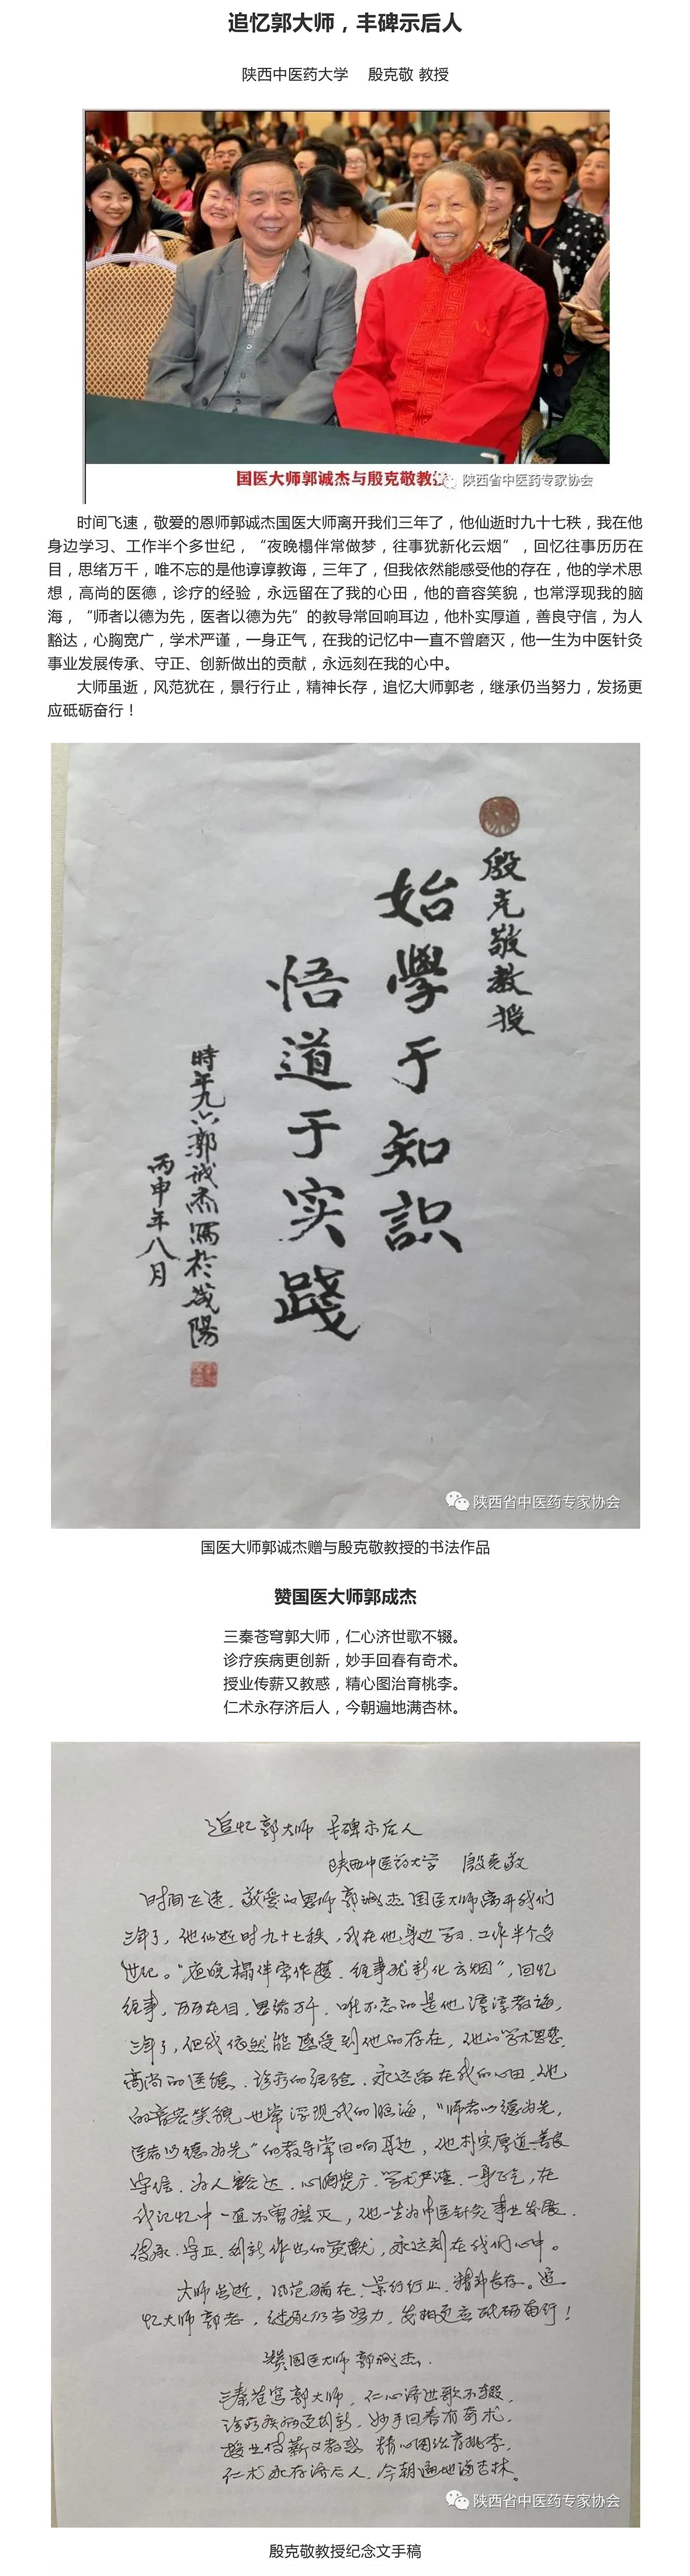 追忆郭大师，丰碑示后人
陕西中医药大学 殷克敬 教授
国医大师郭诚杰与殷克敬教授
陕西省中医药专家协会
时间飞速，敬爱的恩师郭诚杰国医大师离开我们三年了，他仙逝时九十七秩，我在他
身边学习、工作半个多世纪，“夜晚榻伴常做梦，往事犹新化云烟”，回忆往事历历在
目，思绪万千，唯不忘的是他谆谆教诲，三年了，但我依然能感受他的存在，他的学术思
想，高尚的医德，诊疗的经验，永远留在了我的心田，他的音容笑貌，也常浮现我的脑
海，“师者以德为先，医者以德为先”的教导常回响耳边，他朴实厚道，善良守信，为人
豁达，心胸宽广，学术严谨，一身正气，在我的记忆中一直不曾磨灭，他一生为中医针灸
事业发展传承、守正、创新做出的贡献，永远刻在我的心中。
大师虽逝，风范犹在，景行行止，精神长存，追忆大师郭老，继承仍当努力，发扬更
应砥砺奋行！
殷克敬教授
始学于知识
悟道于实践
時年九六郭诚杰写於咸陽
丙申年八月
陕西省中医药专家协会
国医大师郭诚杰赠与殷克敬教授的书法作品
赞国医大师郭成杰
三秦苍穹郭大师，仁心济世歌不辍。
诊疗疾病更创新，妙手回春有奇术。
授业传薪又教惑，精心图治育桃李。
仁术永存济后人，今朝遍地满杏林。
追忆郭大师 丰碑示后人
陕西中医药大学 殷克敬
时间飞速，敬爱的恩师郭诚杰国医大师离开我们
三年了，他仙逝时九十七秩，我在他身边学习、工作半个多
世纪。“夜晚榻伴常作梦，往事犹新化云烟”，回忆
往事，历历在目，思绪万千，唯不忘的是他谆谆教诲，
三年了，但我依然能感受到他的存在，他的学术思想，
高尚的医德、诊疗的经验、永远留在我的心田，他
的音容笑貌也常浮现我的脑海，“师者以德为先，
医者以德为先”的教导常回响耳边，他朴实厚道、善良
守信、为人豁达、心胸宽广、学术严谨、一身正气，在
我记忆中一直不曾磨灭，他一生为中医针灸事业发展、
传承、守正、创新作出的贡献，永远刻在我们心中。
大师虽逝，风范犹在，景行行止，精神长存。追
忆大师郭老，继承仍当努力，发扬更应砥砺奋行！
赞国医大师郭诚杰
三秦苍穹郭大师，仁心济世歌不辍，
诊疗疾病更创新，妙手回春有奇术，
授业传薪又教惑，精心图治育桃李，
仁术永存济后人，今朝遍地满杏林。
陕西省中医药专家协会
殷克敬教授纪念文手稿